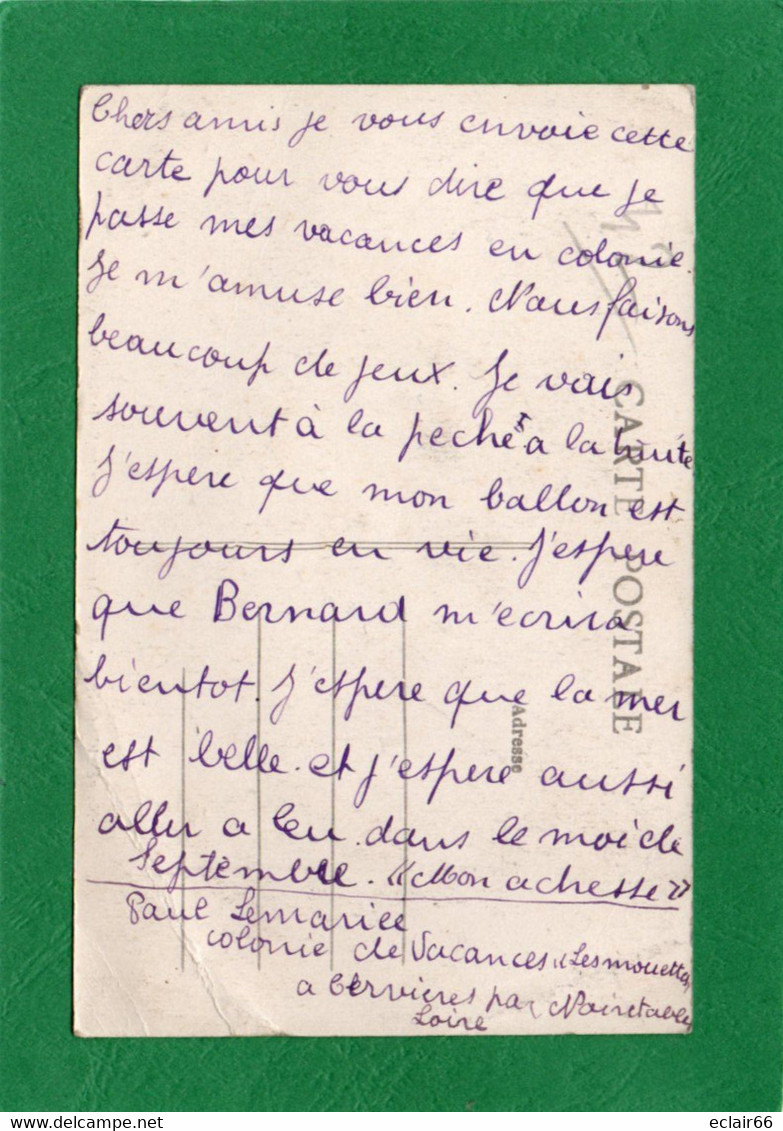 Chers amis je vous envoie cette
carte pour vous dire que je
passe mes vacances en colonie.
Je m'amuse bien. Nous faisons
beaucoup de jeux. Je vais
souvent à la peche à la truite
J'espere que mon ballon est
toujours en vie. J'espere
que Bernard m'ecrira
bientot. J'espere que la mer
est belle. et j'espere aussi
aller a leu dans le moi de
Septembre. «Mon adresse»
Paul Lemariee
colonie de Vacances «Les mouettes
a Cervieres par Noiretable
Loire
CARTE POSTALE
Adresse
eclair66